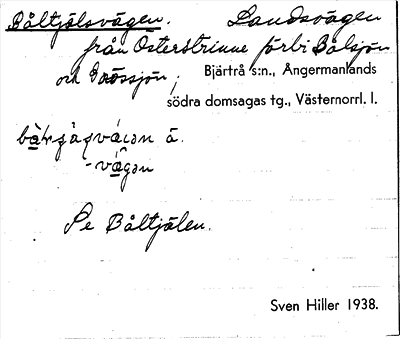 Båltjälsvägen. Landsvägen
från Österstrinne förbi Bålsjön
och Gåssjön, Bjärtrå s:n., Ångermanlands
södra domsagas tg., Västernorrl. l.
å.
Se Båltjälen.
Sven Hiller 1938.